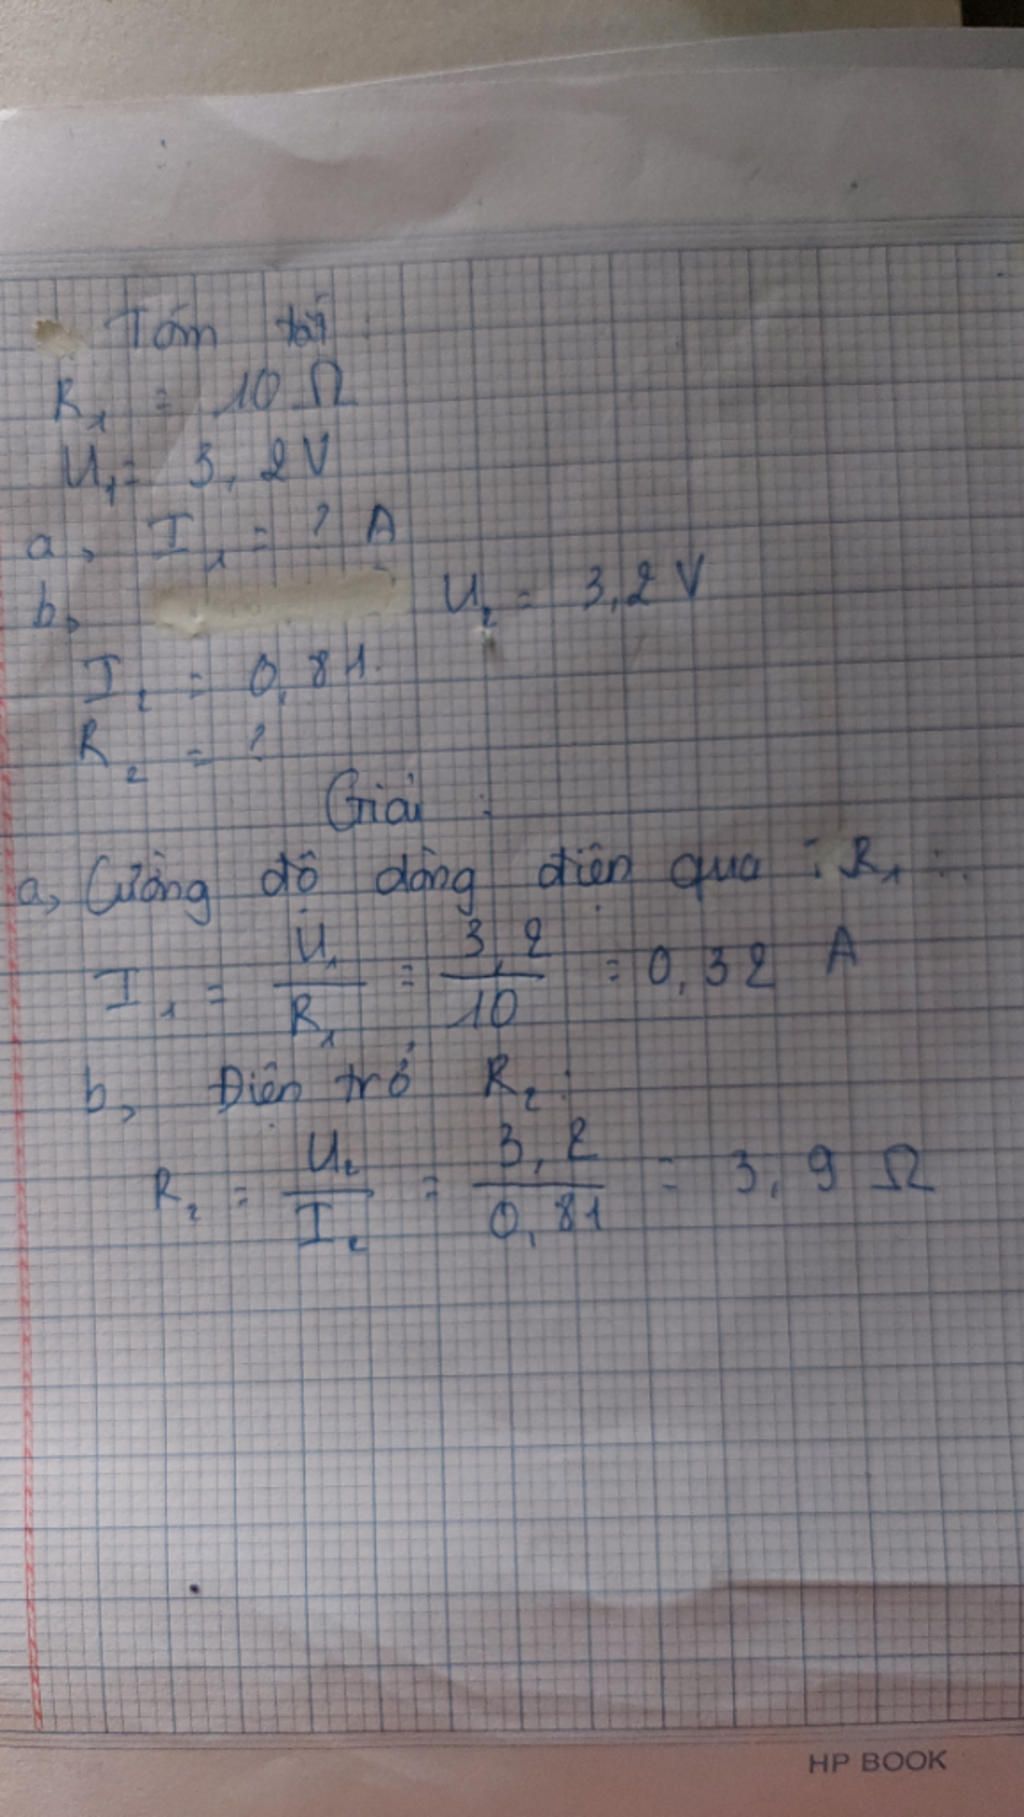 Tóm tắt :
R₁ = 10 Ω
U₁ = 3,2V
a, I₁ = ? A
b, U₂ = 3,2V
I₂ = 0,81.
R₂ = ?
Giải :
a, Cường độ dòng điện qua : R₁ :
I₁ = U₁/R₁ = 3,2/10 = 0,32 A
b, Điện trở R₂ :
R₂ = U₂/I₂ = 3,2/0,81 = 3,9 Ω
HP BOOK